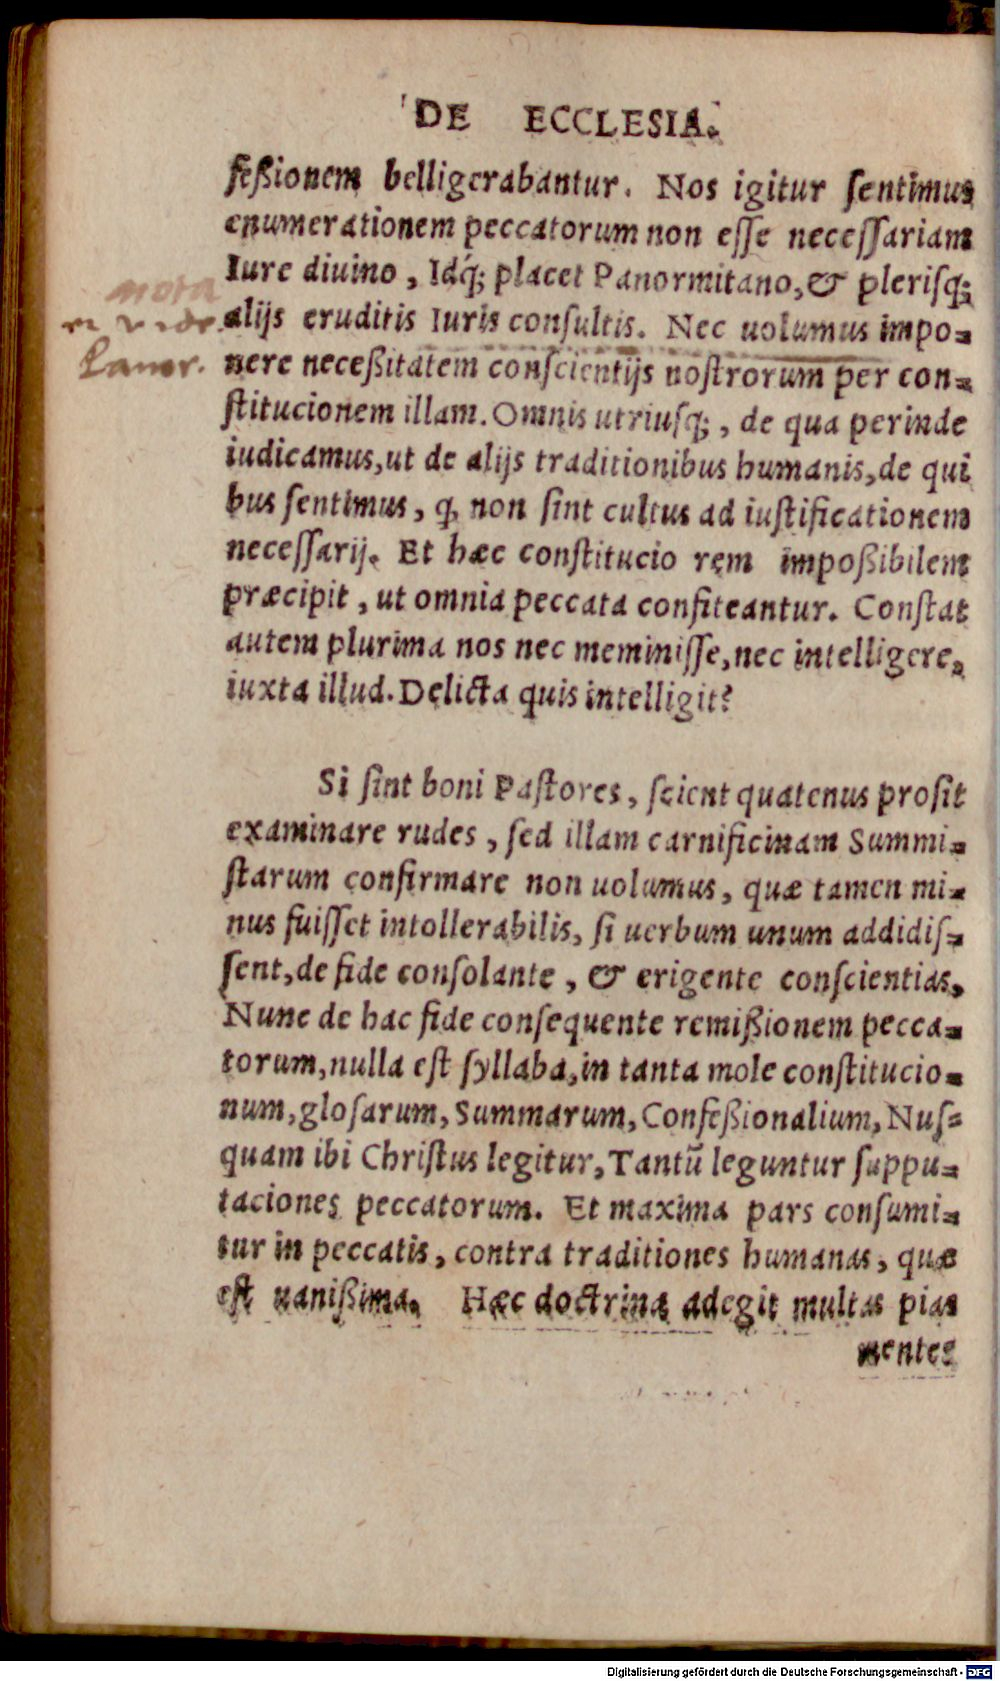 DE ECCLESIA.
feßionem belligerabantur. Nos igitur ſentimus
enumerationem peccatorum non eſſe neceſſariam
Iure diuino, Idq́; placet Panormitano, & pleriſq;
alijs eruditis Iuris conſultis. Nec uolumus impo-
nere neceßitatem conſcientijs noſtrorum per con-
ſtitucionem illam. Omnis utriuſq;, de qua perinde
iudicamus, ut de alijs traditionibus humanis, de qui
bus ſentimus, q̨ non ſint cultus ad iuſtificationem
neceſſarij. Et hæc conſtitucio rem impoßibilem
præcipit, ut omnia peccata confiteantur. Conſtat
autem plurima nos nec meminiſſe, nec intelligere,
iuxta illud. Delicta quis intelligit?
Si ſint boni Paſtores, ſcient quatenus proſit
examinare rudes, ſed illam carnificinam Summi-
ſtarum confirmare non uolumus, quæ tamen mi-
nus fuiſſet intollerabilis, ſi uerbum unum addidiſ-
ſent, de fide conſolante, & erigente conſcientias,
Nunc de hac fide conſequente remißionem pecca-
torum, nulla eſt ſyllaba, in tanta mole conſtitucio-
num, gloſarum, Summarum, Confeßionalium, Nuſ-
quam ibi Chriſtus legitur, Tantũ leguntur ſuppu-
taciones peccatorum. Et maxima pars conſumi-
tur in peccatis, contra traditiones humanas, quæ
eſt uanißima. Hæc doctrina adegit multas pias
mentes
nota
vide
Digitalisierung gefördert durch die Deutsche Forschungsgemeinschaft - DFG